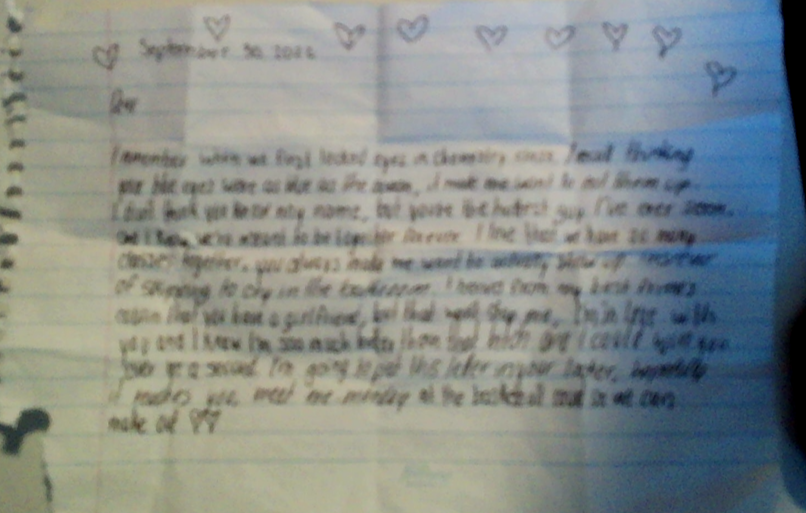 September 30, 2022
I remember when we first locked eyes in Chemistry
blue eyes were as blue as the ocean, it made me want to eat them up.
I don't think you know my name, but you're the hottest guy I've ever seen.
and I know we're meant to be together forever. I love that we have so many
classes together, you always make me want to actually show up instead
of skipping to cry in the bathroom. I heard from my best friend
that you have a girlfriend, but that won't stop me, I'm in love with
you and I know I'm soo much better than that bitch and I could
over in a second. I'm going to put this letter in your locker, hopefully
it reaches you, meet me monday at the basketball court so we can
make out